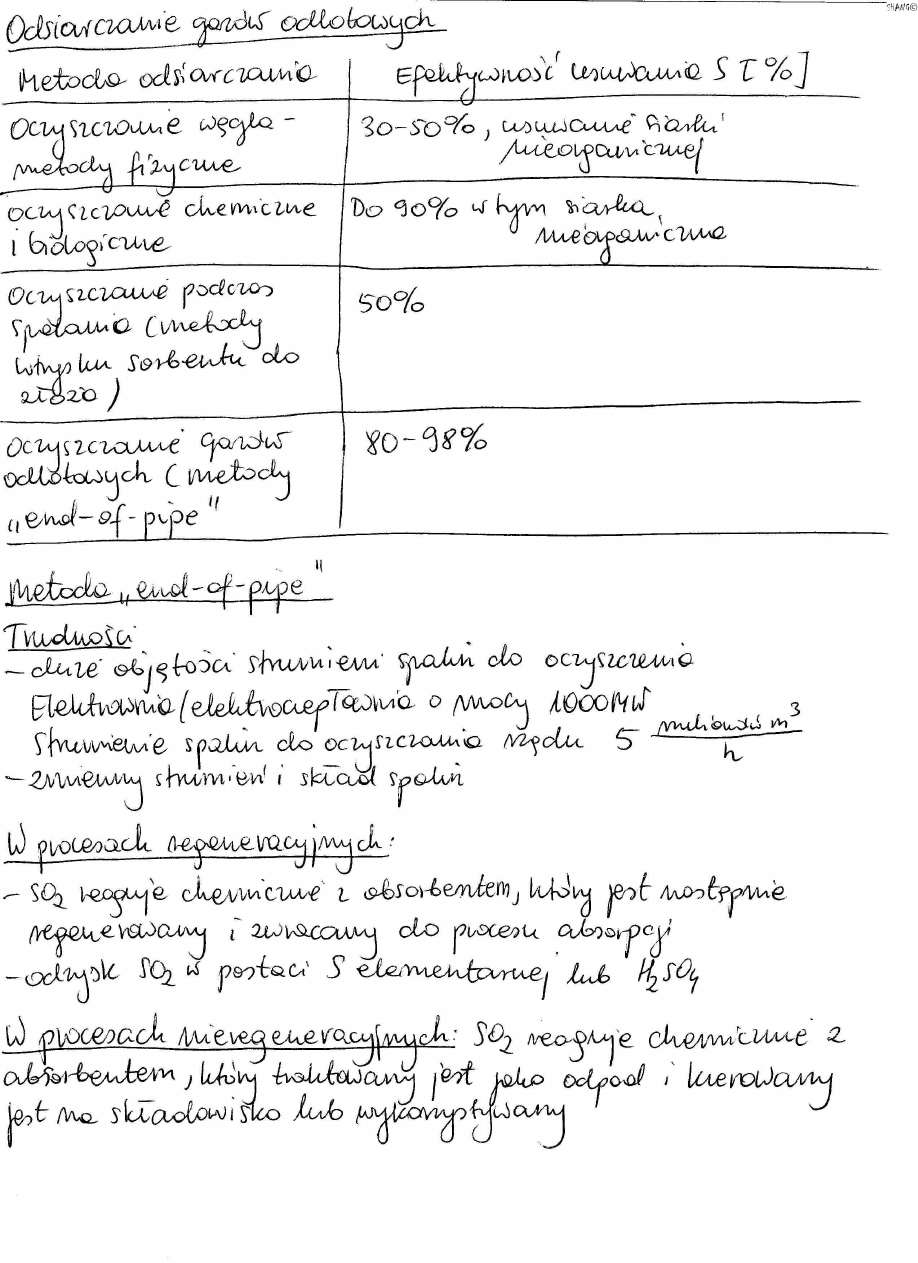 SHANG©
Odsiarczanie gazów odlotowych
Metoda odsiarczania
Efektywność usuwania S [%]
Oczyszczanie węgla -
metody fizyczne
30-50%, usuwanie siarki
nieorganicznej
Oczyszczanie chemiczne
i biologiczne
Do 90% w tym siarka
nieorganiczna
Oczyszczanie podczas
spalania (metody
wtrysku sorbentu do
złoża)
50%
Oczyszczanie gazów
odlotowych (metody
„end-of-pipe"
80-98%
Metoda „end-of-pipe"
Trudności
- duże objętości strumieni spalin do oczyszczenia
Elektrownia/elektrociepłownia o mocy 1000MW
Strumienie spalin do oczyszczania rzędu 5 milionów m³/h
- zmienny strumień i skład spalin
W procesach regeneracyjnych:
- SO₂ reaguje chemicznie z absorbentem, który jest następnie
regenerowany i zwracany do procesu absorpcji
- odzysk SO₂ w postaci S elementarnej lub H₂SO₄
W procesach nieregeneracyjnych: SO₂ reaguje chemicznie z
absorbentem, który traktowany jest jako odpad i kierowany
jest na składowisko lub wykorzystywany